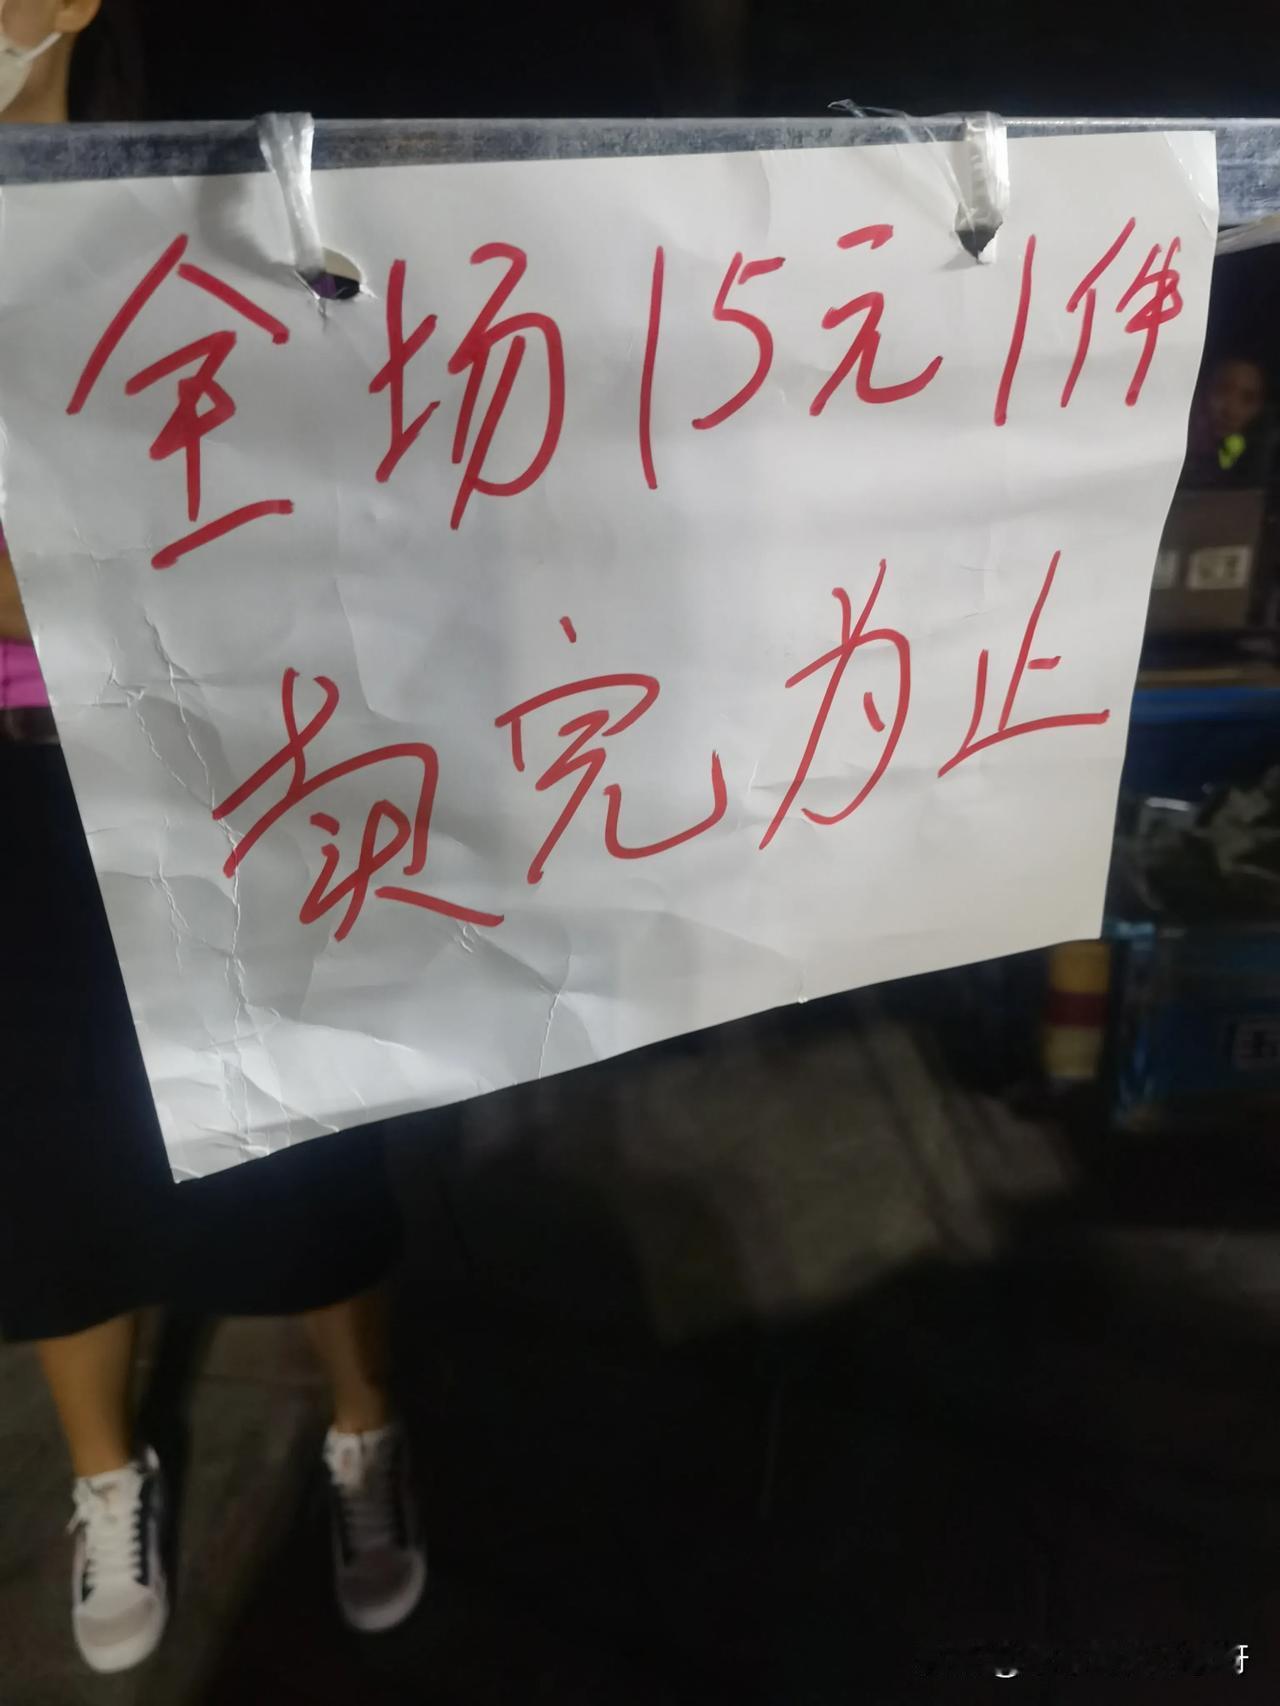 全场15元1件
卖完为止